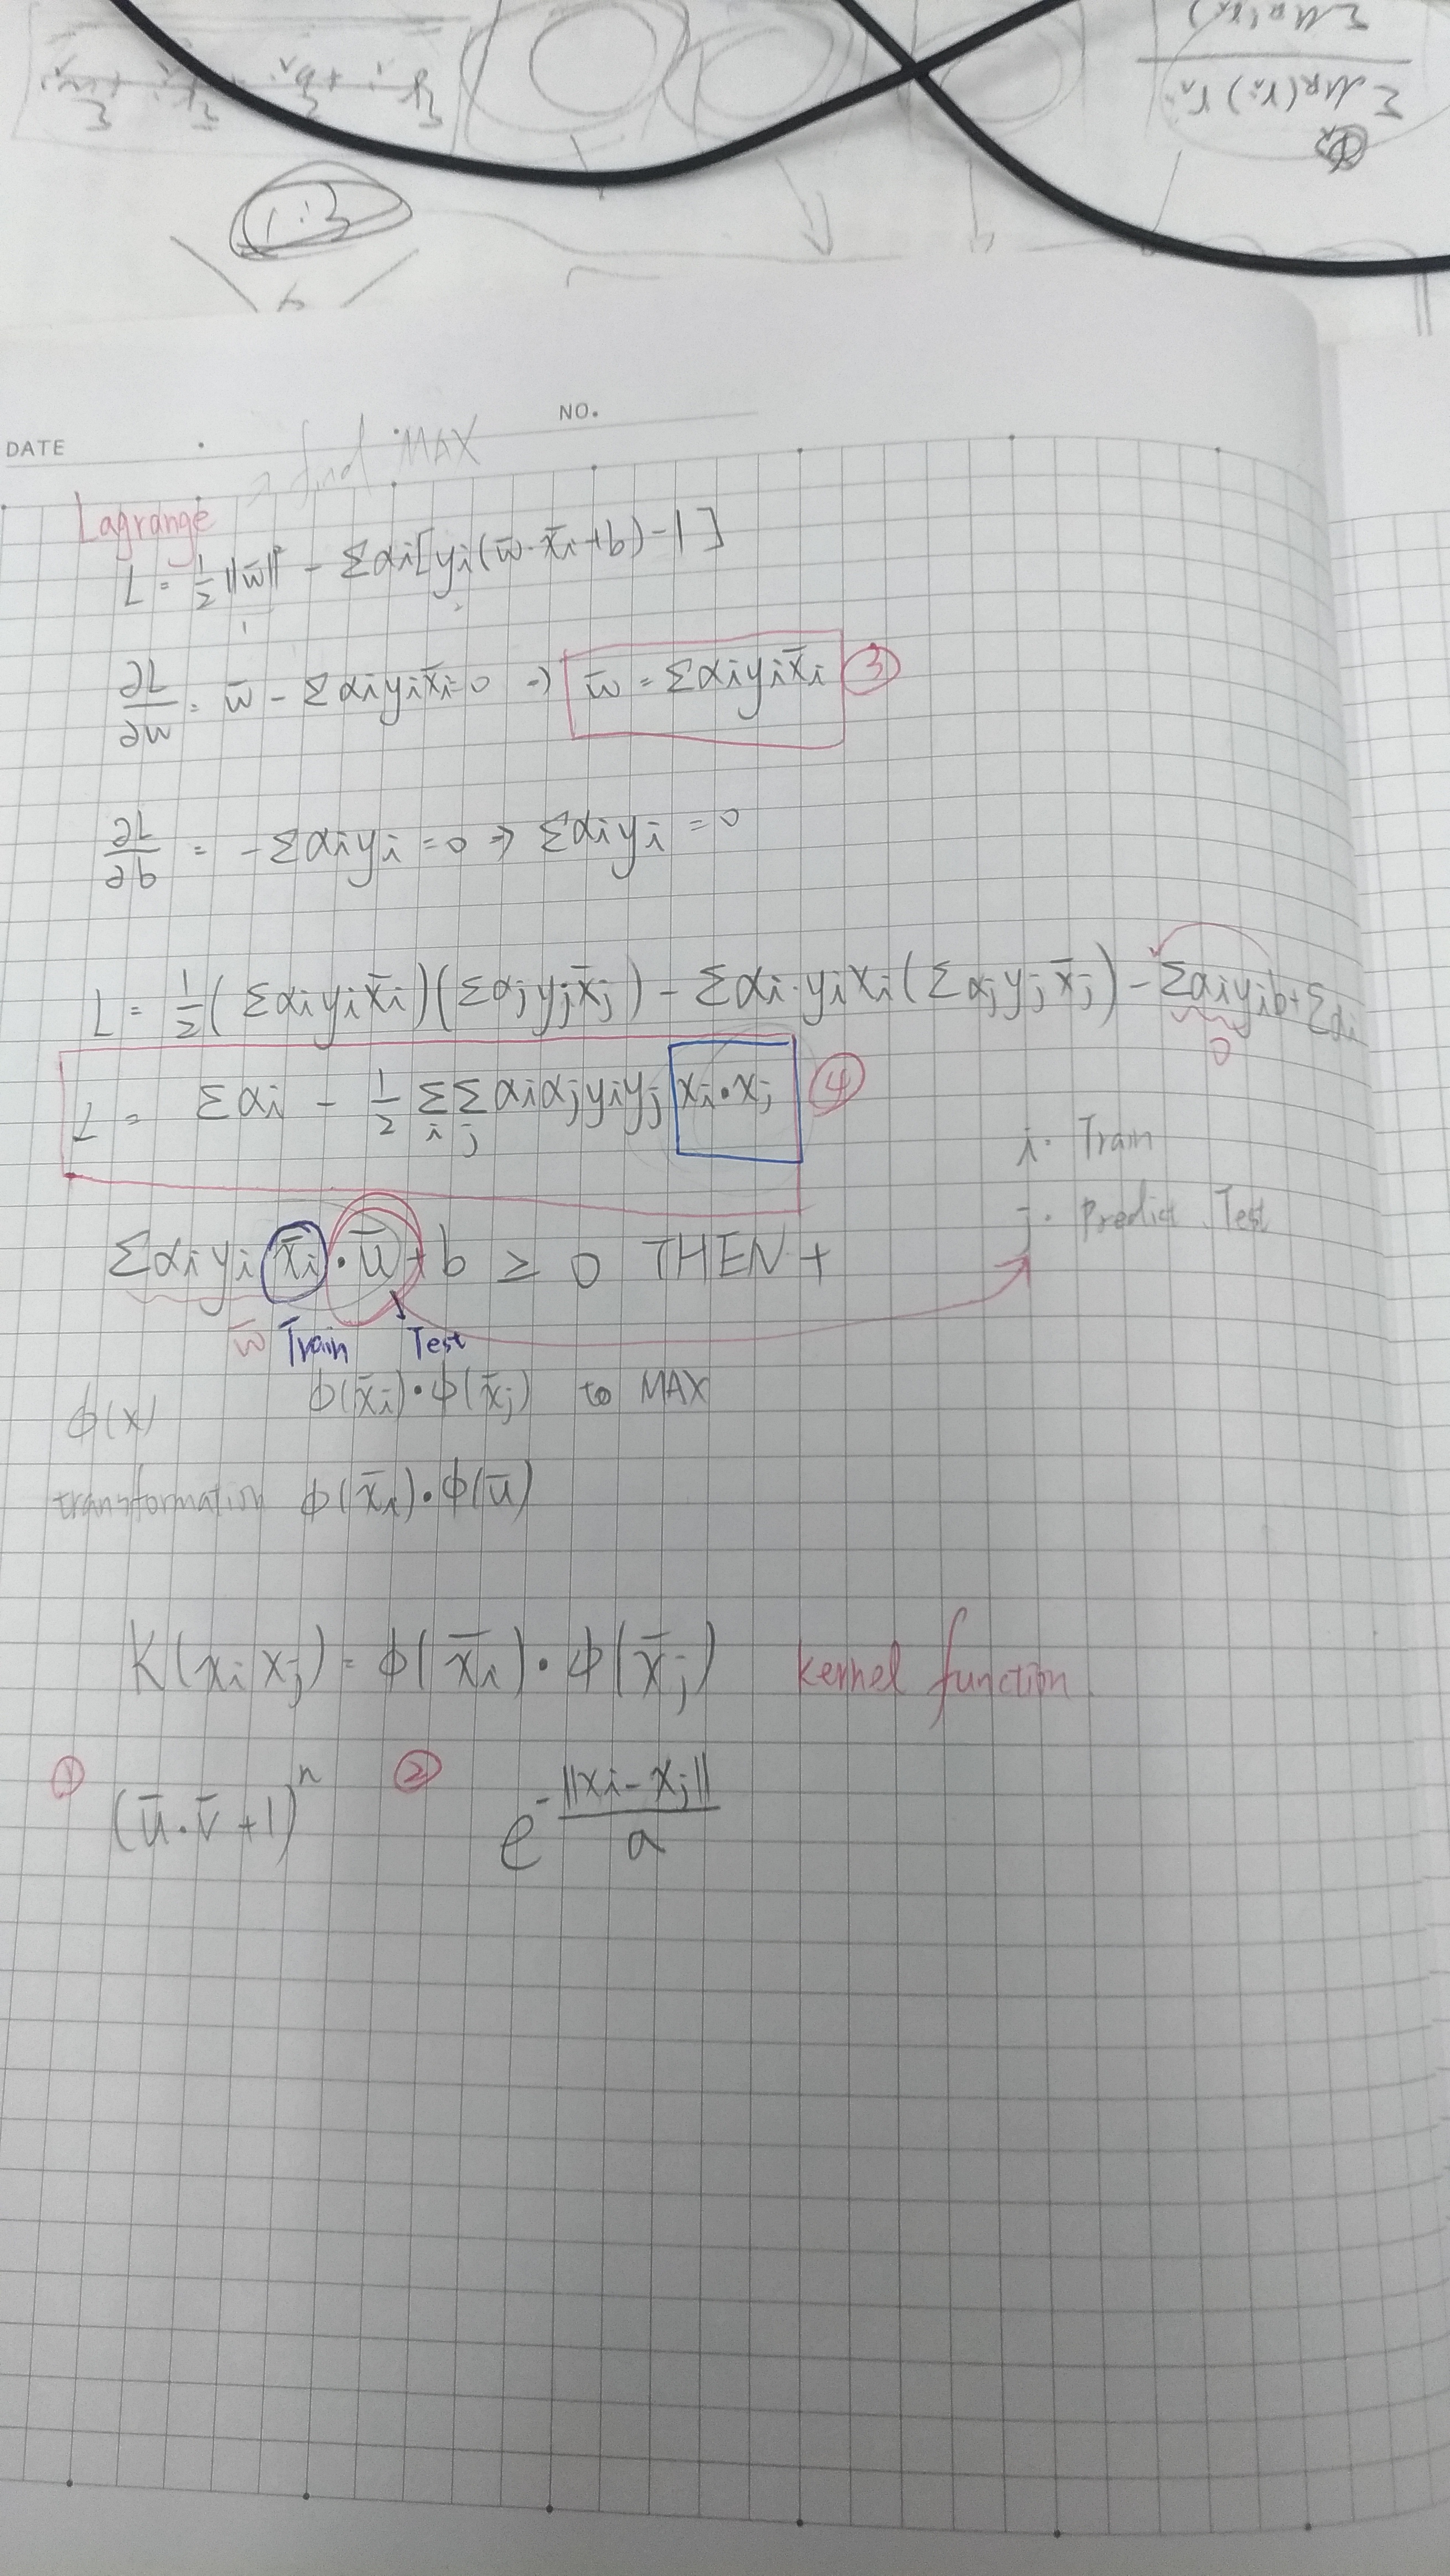 1:3
DATE
NO.
→ find MAX
Lagrange
L = 1/2 ||w̄||² - Σαi[yi(w̄·x̄i+b)-1]
∂L/∂w = w̄ - Σαiyix̄i=0 → w̄ = Σαiyix̄i ③
∂L/∂b = -Σαiyi = 0 ⇒ Σαiyi = 0
L = 1/2(Σαiyix̄i)(Σαjyjx̄j) - Σαi·yixi(Σαjyjx̄j) - Σαiyib+Σαi
0
L = Σαi - 1/2 Σi Σj αiαjyiyj xi·xj ④
i. Train
j. Predict Test
Σαiyi x̄i·ū+b ≥ 0 THEN +
w̄ Train Test
ϕ(x) ϕ(x̄i)·ϕ(x̄j) to MAX
transformation ϕ(x̄i)·ϕ(ū)
K(xi xj) = ϕ(x̄i)·ϕ(x̄j) kernel function
① (ū·v̄+1)ⁿ ② e^-||xi-xj||/a